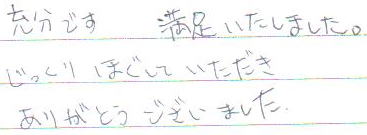 充分です　満足いたしました。
じっくりほぐしていただき
ありがとうございました.